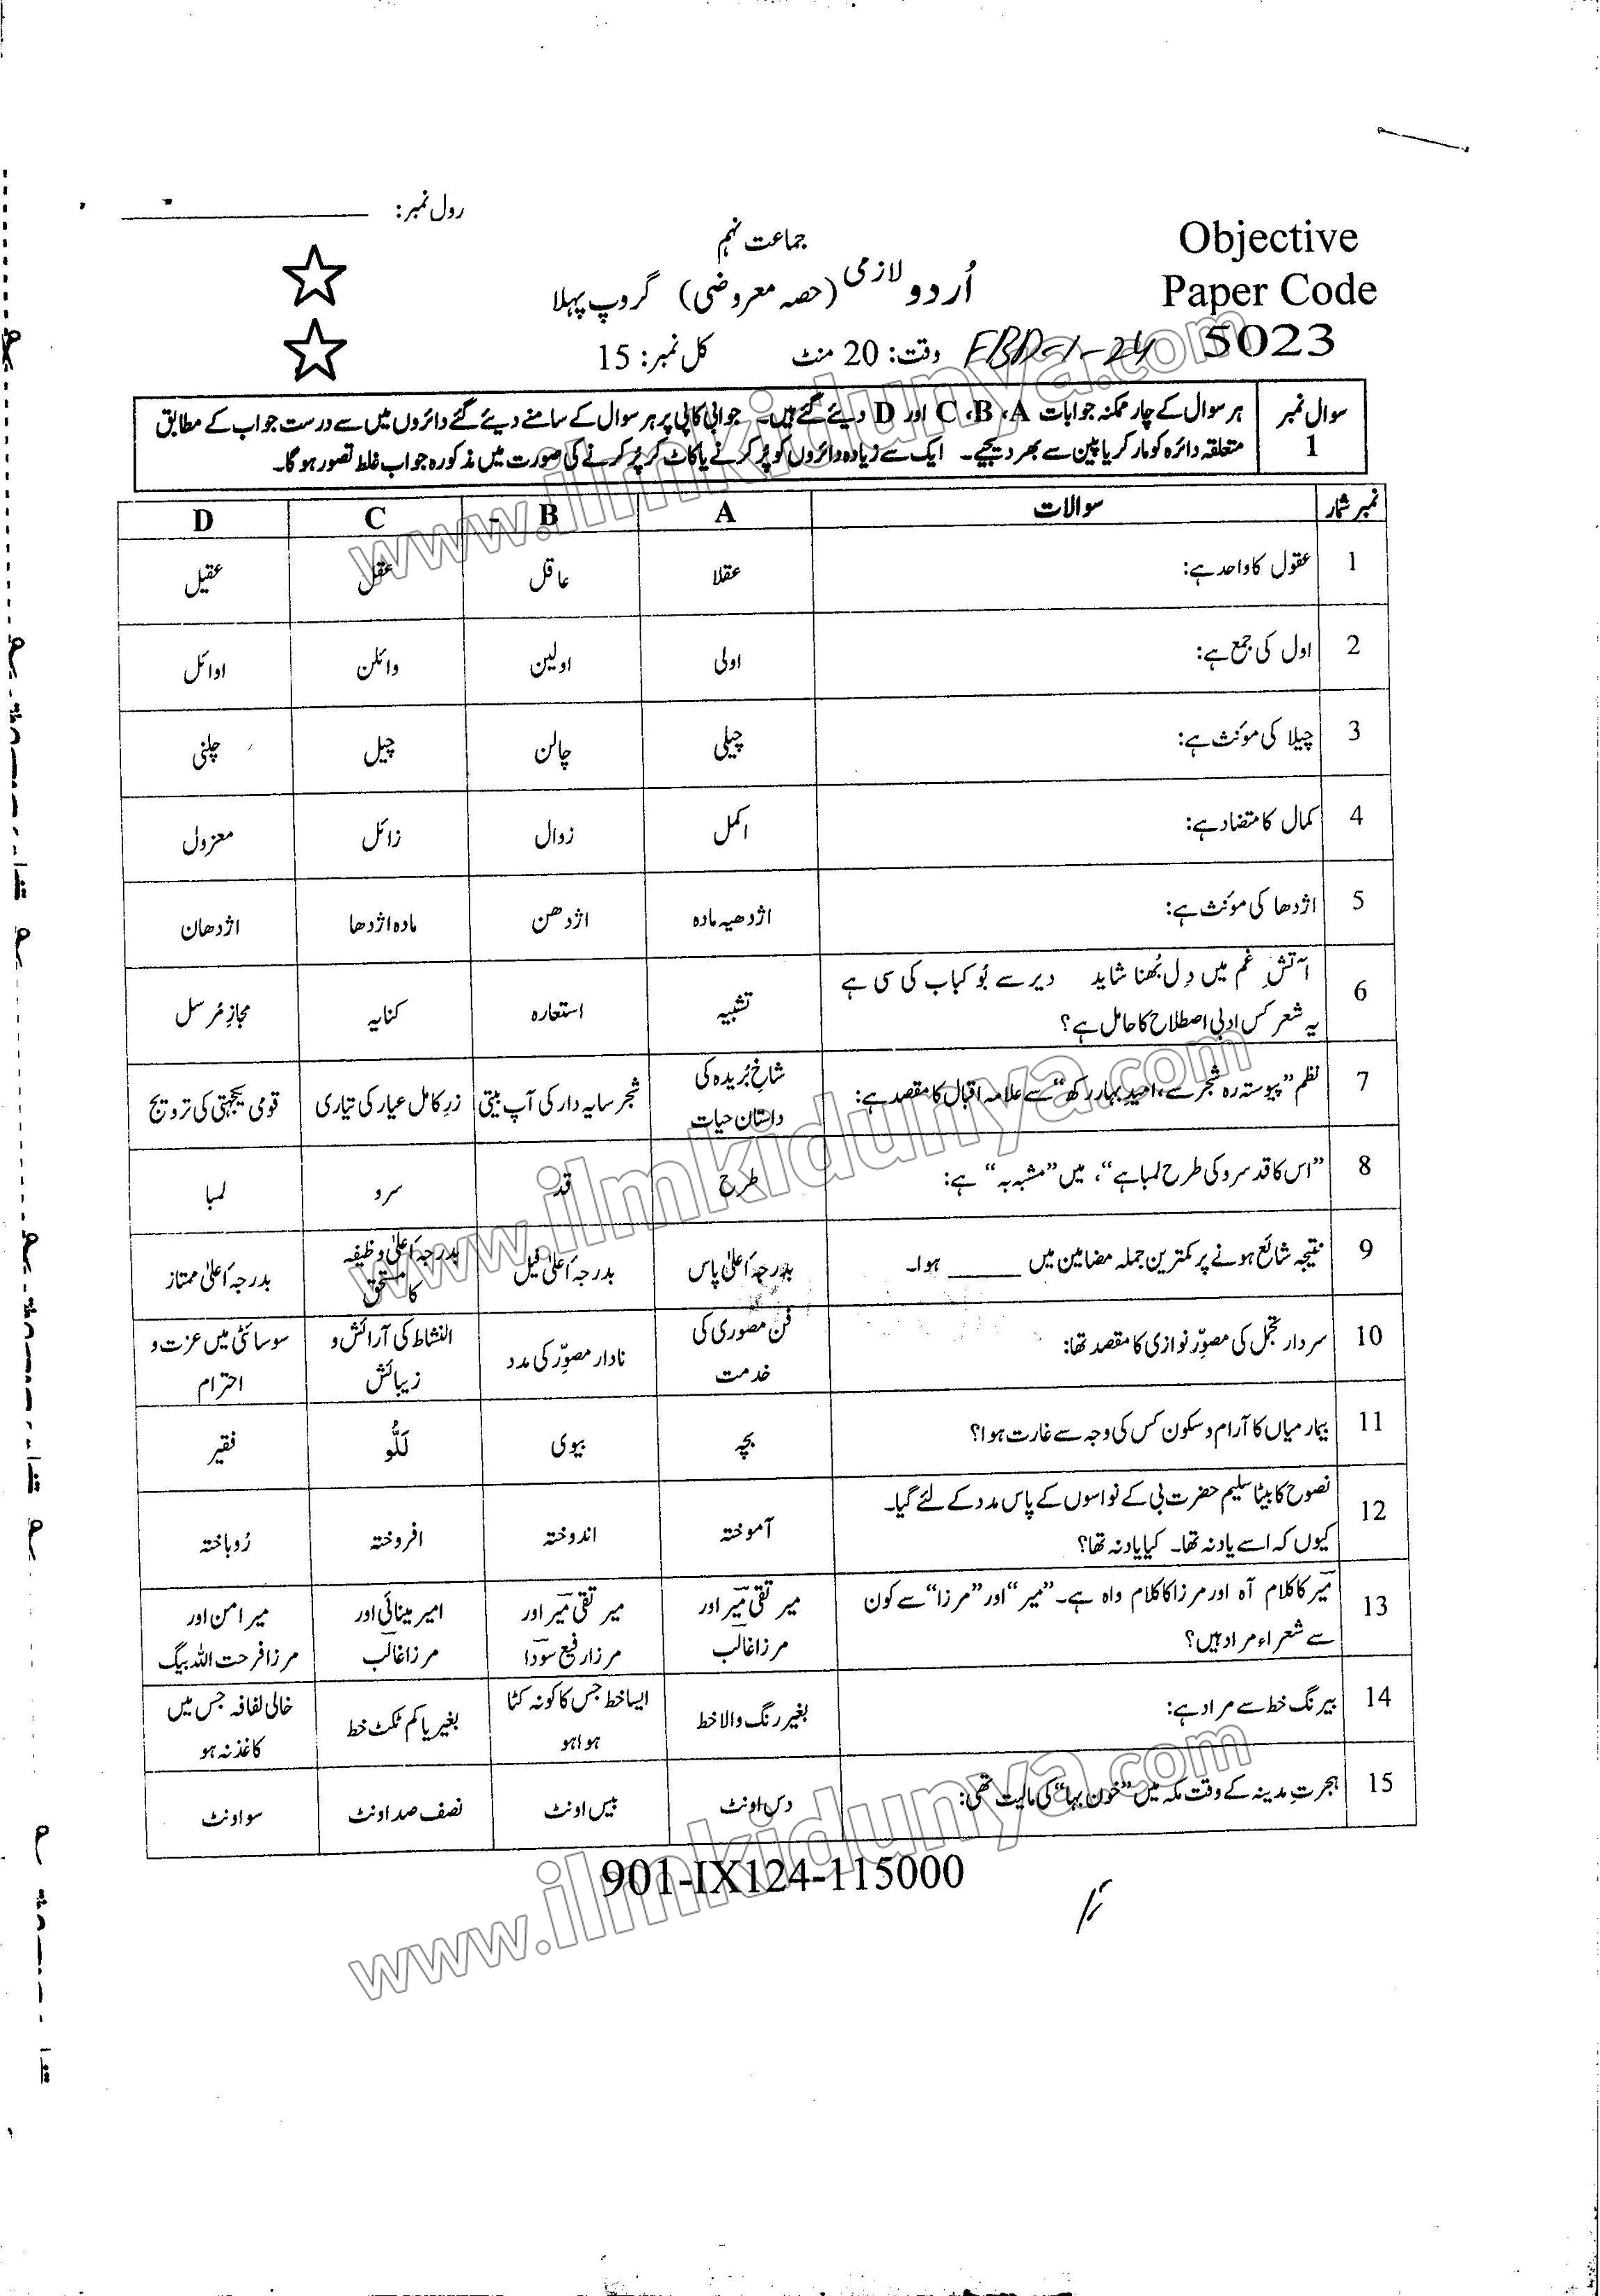 رول نمبر:
جماعت نہم
اُردو لازمی (حصہ معروضی) گروپ پہلا
Objective
Paper Code
5023
وقت: 20 منٹ کل نمبر: 15
سوال نمبر 1
ہر سوال کے چار ممکنہ جوابات A، B، C اور D دیئے گئے ہیں۔ جوابی کاپی پر ہر سوال کے سامنے دیئے گئے دائروں میں سے درست جواب کے مطابق
متعلقہ دائرہ کو مارکر یا پین سے بھر دیجیے۔ ایک سے زیادہ دائروں کو پُر کرنے یا کاٹ کر پُر کرنے کی صورت میں مذکورہ جواب غلط تصور ہو گا۔
نمبر شمار سوالات A B C D
1 عقول کا واحد ہے: عقلا عاقل عقل عقیل
2 اول کی جمع ہے: اولی اولین وائلن اوائل
3 چیلا کی مؤنث ہے: چیلی چالن چیل چلنی
4 کمال کا متضاد ہے: اکمل زوال زائل معزول
5 اژدھا کی مؤنث ہے: اژدھیہ مادہ اژدھن مادہ اژدھا اژدھان
6 آتشِ غم میں دِل بُھنا شاید دیر سے بُو کباب کی سی ہے
یہ شعر کس ادبی اصطلاح کا حامل ہے؟ تشبیہ استعارہ کنایہ مجازِ مُرسل
7 نظم ”پیوستہ رہ شجر سے، امیدِ بہار رکھ“ سے علامہ اقبال کا مقصد ہے: شاخِ بُریدہ کی داستان حیات شجر سایہ دار کی آپ بیتی زرِ کامل عیار کی تیاری قومی یکجہتی کی ترویج
8 ”اس کا قد سرو کی طرح لمبا ہے“، میں ”مشبہ بہ“ ہے: طرح قد سرو لمبا
9 نتیجہ شائع ہونے پر کمترین جملہ مضامین میں ______ ہوا۔ بدرجہ اَعلیٰ پاس بدرجہ اَعلیٰ فیل بدرجہ اَعلیٰ وظیفہ کا مستحق بدرجہ اَعلیٰ ممتاز
10 سردار تجمل کی مصوّر نوازی کا مقصد تھا: فن مصوری کی خدمت نادار مصوّر کی مدد النشاط کی آرائش و زیبائش سوسائٹی میں عزت و احترام
11 بیمار میاں کا آرام و سکون کس کی وجہ سے غارت ہوا؟ بچہ بیوی لَلُّو فقیر
12 نصوح کا بیٹا سلیم حضرت بی کے نواسوں کے پاس مدد کے لئے گیا۔
کیوں کہ اسے یاد نہ تھا۔ کیا یاد نہ تھا؟ آموختہ اندوختہ افروختہ رُوباختہ
13 میر کا کلام آہ اور مرزا کا کلام واہ ہے۔ ”میر“ اور ”مرزا“ سے کون
سے شعراء مراد ہیں؟ میر تقی میر اور مرزا غالب میر تقی میر اور مرزا رفیع سودا امیر مینائی اور مرزا غالب میر امن اور مرزا فرحت اللہ بیگ
14 بیرنگ خط سے مراد ہے: بغیر رنگ والا خط ایسا خط جس کا کونہ کٹا ہوا ہو بغیر یا کم ٹکٹ خط خالی لفافہ جس میں کاغذ نہ ہو
15 ہجرتِ مدینہ کے وقت مکہ میں ”خون بہا“ کی مالیت تھی: دس اونٹ بیس اونٹ نصف صد اونٹ سو اونٹ
901-IX124-115000
www.ilmkidunya.com
www.ilmkidunya.com
www.ilmkidunya.com